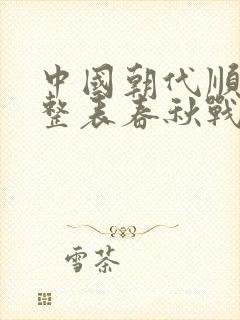 中國朝代順
整表春秋戰
雪茶